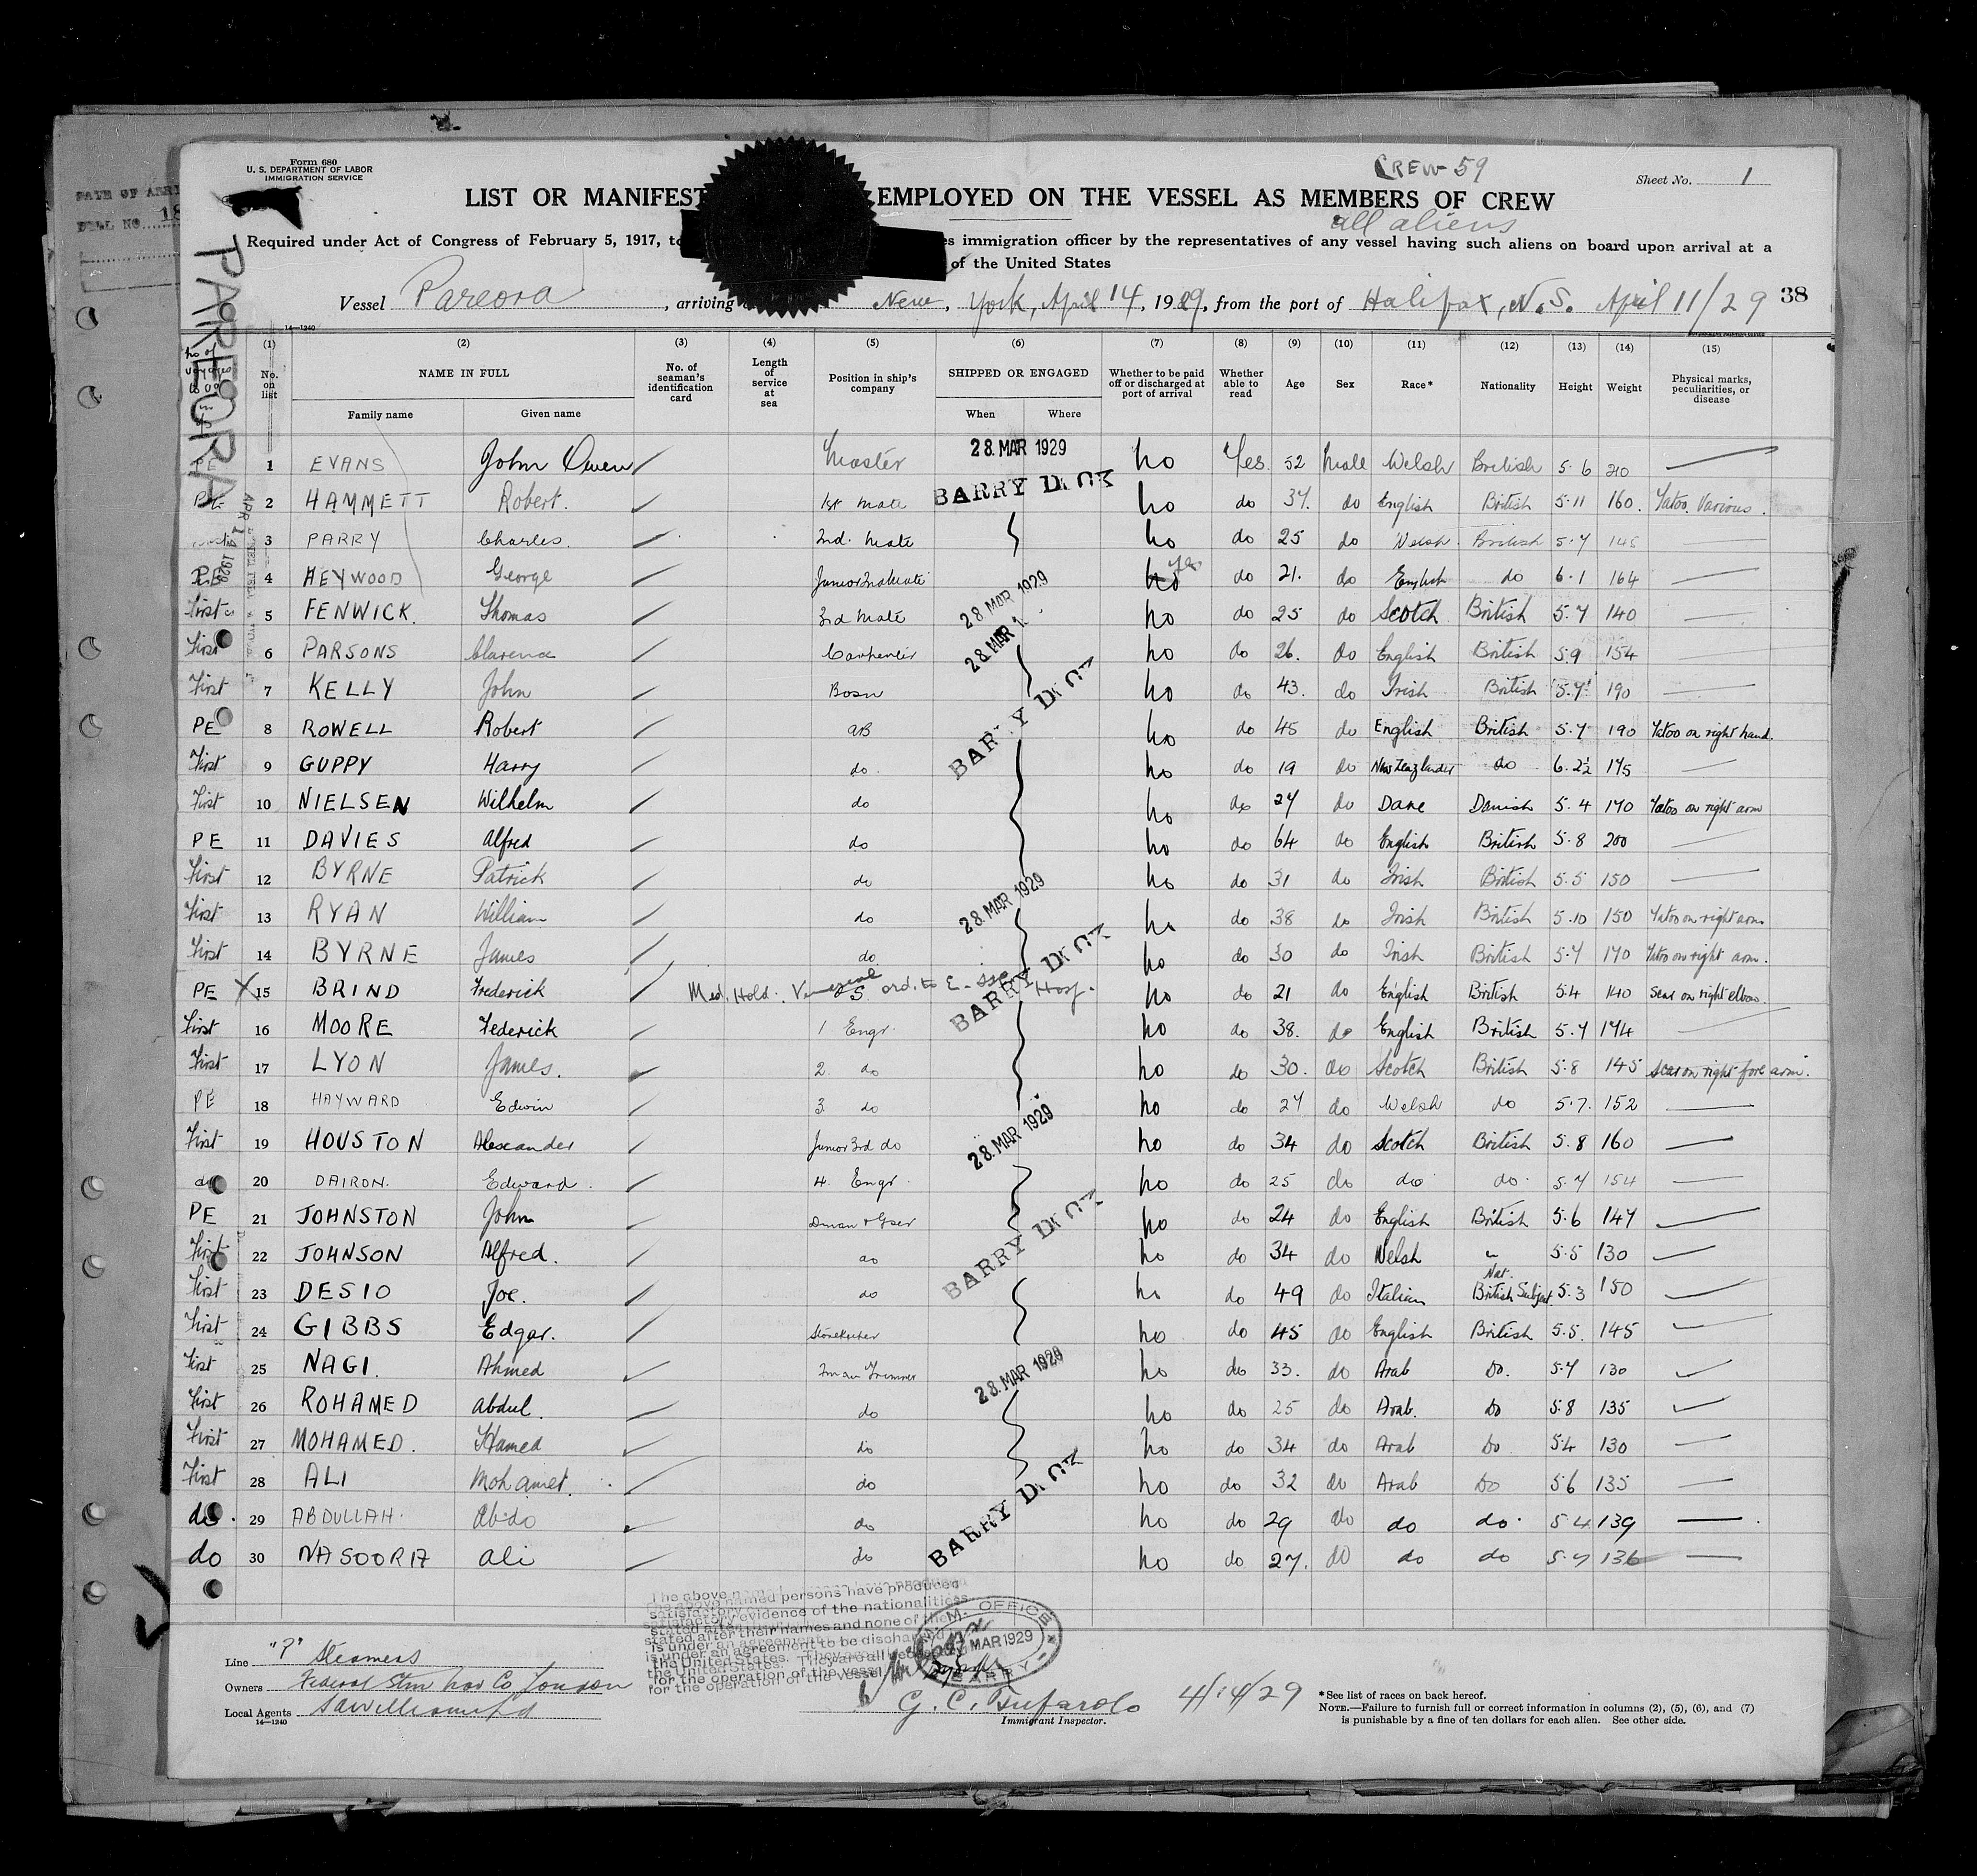 Form 680
U. S. DEPARTMENT OF LABOR
IMMIGRATION SERVICE
CREW 59
Sheet No. 1
LIST OR MANIFEST EMPLOYED ON THE VESSEL AS MEMBERS OF CREW
all aliens
Required under Act of Congress of February 5, 1917, to immigration officer by the representatives of any vessel having such aliens on board upon arrival at a
of the United States
Vessel Pareora, arriving New York, April 14, 1929, from the port of Halifax, N.S. April 11/29 38
14—1240
PAREORA
(1) (2) (3) (4) (5) (6) (7) (8) (9) (10) (11) (12) (13) (14) (15)
No. on list
NAME IN FULL
Family name Given name
No. of seaman's identification card
Length of service at sea
Position in ship's company
SHIPPED OR ENGAGED
When Where
Whether to be paid off or discharged at port of arrival
Whether able to read
Age Sex Race* Nationality Height Weight
Physical marks, peculiarities, or disease
PE 1 EVANS John Owen Master 28 MAR 1929 No Yes 52 Male Welsh British 5 6 210
BARRY DOCK
2 HAMMETT Robert. 1st Mate No do 37. do English British 5·11 160. Tatoo. Various.
3 PARRY Charles. 2nd. Mate No do 25 do Welsh British 5·7 145
PE 4 HEYWOOD George 28 MAR 1929 No yes do 21. do English do 6·1 164
First 5 FENWICK. Thomas 3rd Mate No do 25 do Scotch British 5·7 140
First 6 PARSONS Clarence Carpenter 28 MAR No do 26. do English British 5.9 154
First 7 KELLY John Bosn No do 43. do Irish British 5·7 190
PE 8 ROWELL Robert AB BARRY DOCK No do 45 do English British 5·7 190 Tatoo on right hand.
First 9 GUPPY Harry do No do 19 do New Zealander do 6·2½ 175
First 10 NIELSEN Wilhelm do No do 27 do Dane Danish 5·4 170 Tatoo on right arm
PE 11 DAVIES Alfred do No do 64 do English British 5·8 200
First 12 BYRNE Patrick do No do 31 do Irish British 5·5 150
First 13 RYAN William do 28 MAR 1929 No do 38 do Irish British 5·10 150 Tatoo on right arm
First 14 BYRNE James do No do 30 do Irish British 5·7 170 Tatoo on right arm.
PE X 15 BRIND Frederick Med. Hold. Venereal OS ord. to E. Hosp. BARRY DOCK No do 21 do English British 5·4 140 Scar on right elbow.
First 16 MOORE Federick 1 Engr. No do 38. do English British 5·7 174
First 17 LYON James. 2 do No do 30. do Scotch British 5·8 145 Scar on right fore arm.
PE 18 HAYWARD Edwin 3 do No do 27 do Welsh do 5·7. 152
First 19 HOUSTON Alexander Junior 3rd do 28 MAR 1929 No do 34 do Scotch British 5·8 160
do 20 DAIRON. Edward. 4. Engr. No do 25 do do do. 5·7 154
PE 21 JOHNSTON John No do 24 do English British 5·6 147
First 22 JOHNSON Alfred. do BARRY DOCK No do 34 do Welsh " 5·5 130
First 23 DESIO Joe. do No do 49 do Italian Nat. British Subject 5·3 150
First 24 GIBBS Edgar. Storekeeper No do 45 do English British 5·5. 145
First 25 NAGI. Ahmed 28 MAR 1929 No do 33. do Arab Do. 5·7 130
First 26 ROHAMED Abdul. do No do 25 do Arab. Do 5·8 135
First 27 MOHAMED. Hamed do No do 34 do Arab Do 5·4 130
First 28 ALI Mohamet. do No do 32 do Arab Do 5 6 135
do. 29 ABDULLAH. Abdo do BARRY DOCK No do 29 do do do. 5·4 139
do 30 NASOORIA Ali do No do 27. do do do 5·7 136
The above named persons have produced
satisfactory evidence of the nationalities
stated after their names and none of them
is under an agreement to be discharged in
the United States. They are all
for the operation of the vessel
OFFICE MAR 1929 BARRY
Line "P" Steamers
Owners Federal Stm Nav Co London
Local Agents
14—1240
G. C. Tufarolo 4/14/29
Immigrant Inspector.
*See list of races on back hereof.
NOTE.—Failure to furnish full or correct information in columns (2), (5), (6), and (7)
is punishable by a fine of ten dollars for each alien. See other side.